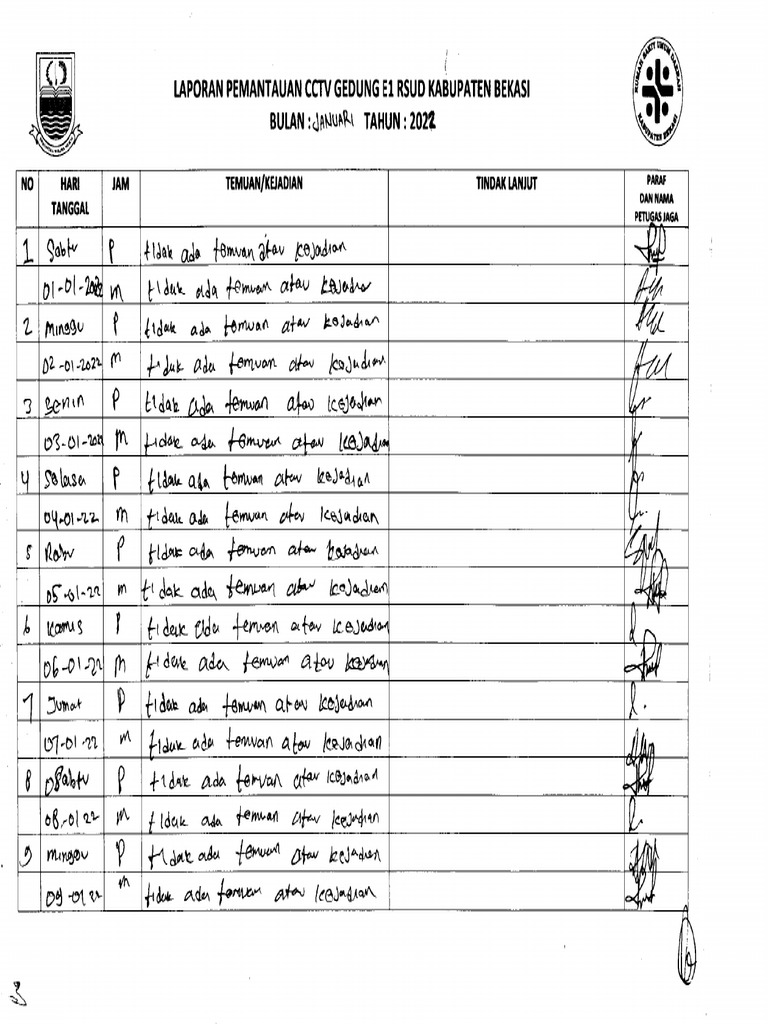 LAPORAN PEMANTAUAN CCTV GEDUNG E1 RSUD KABUPATEN BEKASI
BULAN : JANUARI TAHUN : 2022
RUMAH SAKIT UMUM DAERAH
KABUPATEN BEKASI
NO HARI TANGGAL JAM TEMUAN/KEJADIAN TINDAK LANJUT PARAF DAN NAMA PETUGAS JAGA
1 Sabtu P tidak ada temuan atau kejadian
01-01-2022 m tidak ada temuan atau kejadian
2 Minggu P tidak ada temuan atau kejadian
02-01-2022 m tidak ada temuan atau kejadian
3 Senin P tidak ada temuan atau kejadian
03-01-2022 m tidak ada temuan atau kejadian
4 Selasa P tidak ada temuan atau kejadian
04-01-22 m tidak ada temuan atau kejadian
5 Rabu P tidak ada temuan atau kejadian
05-01-22 m tidak ada temuan atau kejadian
6 Kamis P tidak ada temuan atau kejadian
06-01-22 m tidak ada temuan atau kejadian
7 Jumat P tidak ada temuan atau kejadian
07-01-22 m tidak ada temuan atau kejadian
8 Sabtu P tidak ada temuan atau kejadian
08-0122 m tidak ada temuan atau kejadian
9 Minggu P tidak ada temuan atau kejadian
09-0122 m tidak ada temuan atau kejadian